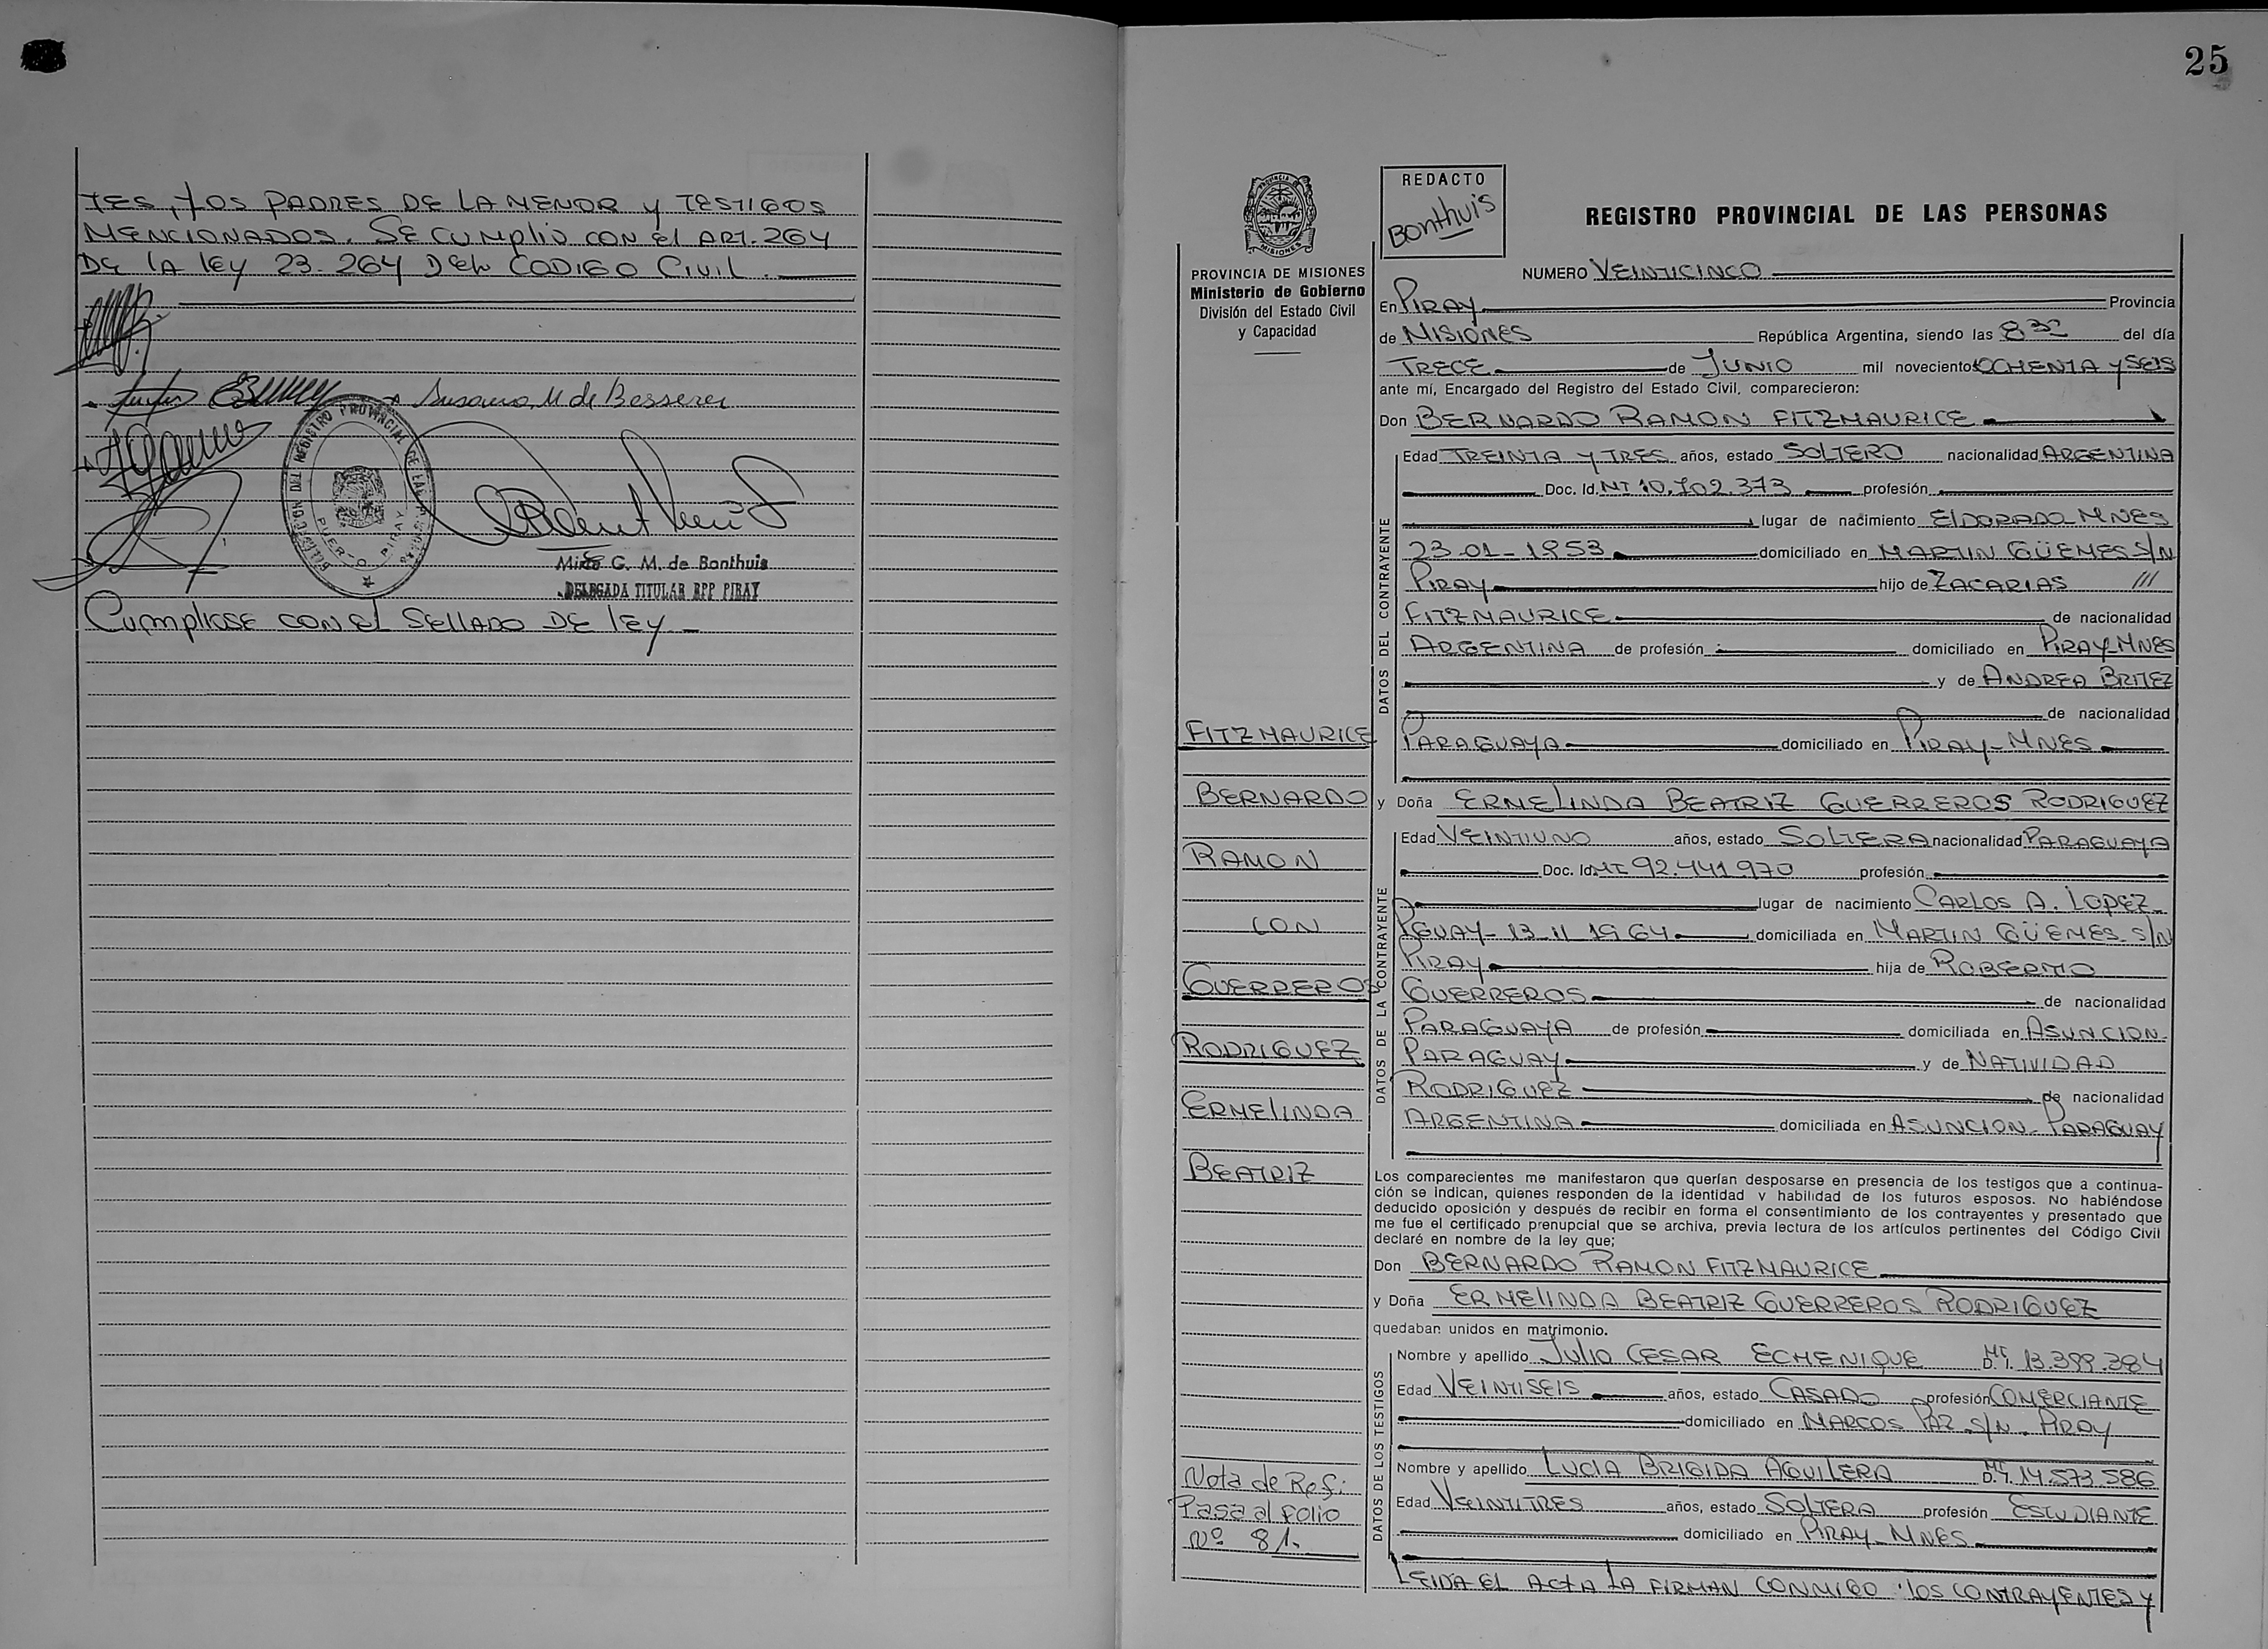 TES, LOS PADRES DE LA MENOR Y TESTIGOS
MENCIONADOS. SE CUMPLIO CON El ART. 264
DE lA lEY 23.264 DEL CODIGO CIVIL.
Susana M de Besserer
DELEGACION DEL REGISTRO PROVINCIAL DE LAS PERSONAS
PUERTO PIRAY
G. M. de Bonthuis
DELEGADA TITULAR RPP PIRAY
Cumpliose CON El SELLADO DE lEY
25
PROVINCIA DE MISIONES
Ministerio de Gobierno
División del Estado Civil
y Capacidad
REDACTO
Bonthuis
REGISTRO PROVINCIAL DE LAS PERSONAS
NUMERO VEINTICINCO
En PIRAY Provincia
de MISIONES República Argentina, siendo las 8,30 del día
TRECE de JUNIO mil novecientos OCHENTA Y SEIS
ante mí, Encargado del Registro del Estado Civil, comparecieron:
Don BERNARDO RAMON FITZMAURICE
DATOS DEL CONTRAYENTE
Edad TREINTA Y TRES años, estado SOLTERO nacionalidad ARGENTINA
Doc. Id. MI 10.702.373 profesión
lugar de nacimiento ElDORADO-MNES
23-01-1953 domiciliado en MARTIN GÜEMES S/N
PIRAY hijo de ZACARIAS ///
FITZMAURICE de nacionalidad
ARGENTINA de profesión domiciliado en PIRAY-MNES
y de ANDREA BRITEZ
de nacionalidad
PARAGUAYA domiciliado en PIRAY-MNES
y Doña ERMELINDA BEATRIZ GUERREROS RODRIGUEZ
DATOS DE LA CONTRAYENTE
Edad VEINTIUNO años, estado SOLTERA nacionalidad PARAGUAYA
Doc. Id. MI 92.441.970 profesión
lugar de nacimiento CARLOS A. LOPEZ
PGUAY-13-11-1964 domiciliada en MARTIN GÜEMES S/N
PIRAY hija de ROBERTO
GUERREROS de nacionalidad
PARAGUAYA de profesión domiciliada en ASUNCION-
PARAGUAY y de NATIVIDAD
RODRIGUEZ de nacionalidad
ARGENTINA domiciliada en ASUNCION-PARAGUAY
Los comparecientes me manifestaron que querían desposarse en presencia de los testigos que a continua-
ción se indican, quienes responden de la identidad y habilidad de los futuros esposos. No habiéndose
deducido oposición y después de recibir en forma el consentimiento de los contrayentes y presentado que
me fue el certificado prenupcial que se archiva, previa lectura de los artículos pertinentes del Código Civil
declaré en nombre de la ley que;
Don BERNARDO RAMON FITZMAURICE
y Doña ERMELINDA BEATRIZ GUERREROS RODRIGUEZ
quedaban unidos en matrimonio.
DATOS DE LOS TESTIGOS
Nombre y apellido JULIO CESAR ECHENIQUE MI D.I. 13.399.384
Edad VEINTISEIS años, estado CASADO profesión COMERCIANTE
domiciliado en MARCOS PAZ S/N. PIRAY
Nombre y apellido LUCIA BRIGIDA AGUILERA MI D.I. 14.573.586
Edad VEINTITRES años, estado SOLTERA profesión ESTUDIANTE
domiciliado en PIRAY-MNES
LEIDA EL ACTA LA FIRMAN CONMIGO lOS CONTRAYENTES Y
FITZMAURICE
BERNARDO
RAMON
CON
GUERREROS
RODRIGUEZ
ERMELINDA
BEATRIZ
Nota de Ref:
Pasa al folio
Nº 81.